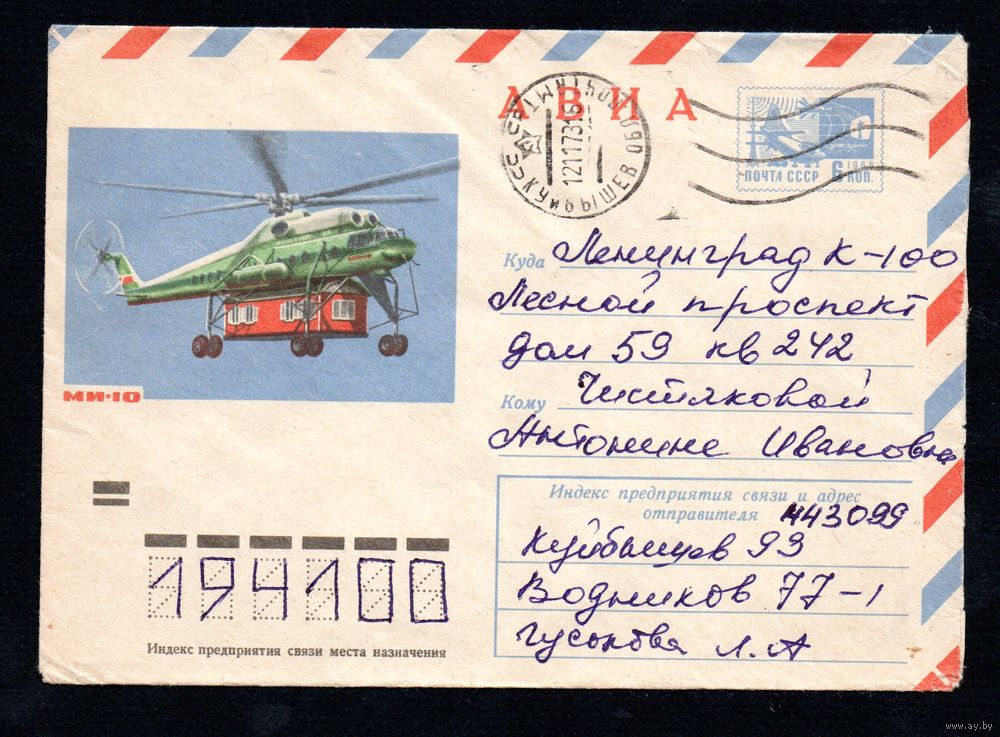 АВИА
СССР КУЙБЫШЕВ ПОЧТАМТ
121173
ПОЧТА СССР 6 КОП.
1966
МИ-10
Куда Ленинград К-100
Лесной проспект
дом 59 кв 242
Кому Чистяковой
Антонине Ивановне
Индекс предприятия связи и адрес
отправителя 443099
Куйбышев 99
Водников 77-1
Гусакова Л.А
194100
Индекс предприятия связи места назначения
www.ay.by